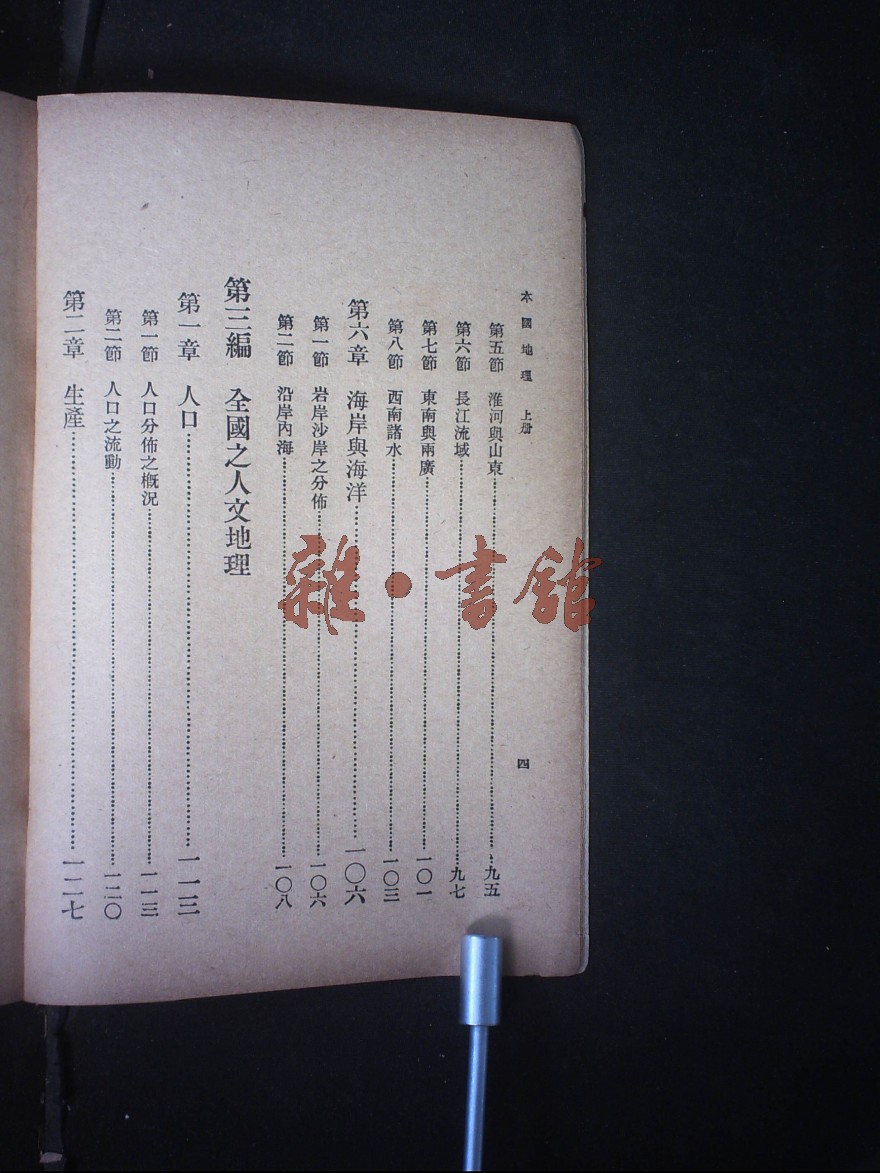 本國地理 上册
四
第五節 淮河與山東……九五
第六節 長江流域……九七
第七節 東南與兩廣……一〇一
第八節 西南諸水……一〇三
第六章 海岸與海洋……一〇六
第一節 岩岸沙岸之分佈……一〇六
第二節 沿岸內海……一〇八
第三編 全國之人文地理
第一章 人口……一一三
第一節 人口分佈之概況……一一三
第二節 人口之流動……一二〇
第二章 生產……一二七
雜·書館